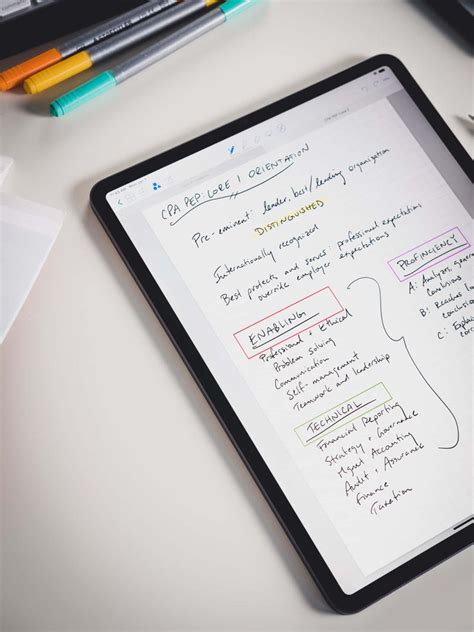 CPA PEP: CORE 1 ORIENTATION
Pre-eminent: leader, best/leading organization
DISTINGUISHED
Internationally recognized
Best protects and serves: professional expectations
override employer expectations
ENABLING
Professional + Ethical
Problem solving
Communication
Self-management
Teamwork and leadership
TECHNICAL
Financial Reporting
Strategy + Governance
Mgmt Accounting
Audit + Assurance
Finance
Taxation
PROFICIENCY
A: Analyzes
conclusions
B: Reaches
conclusions
C: Explai